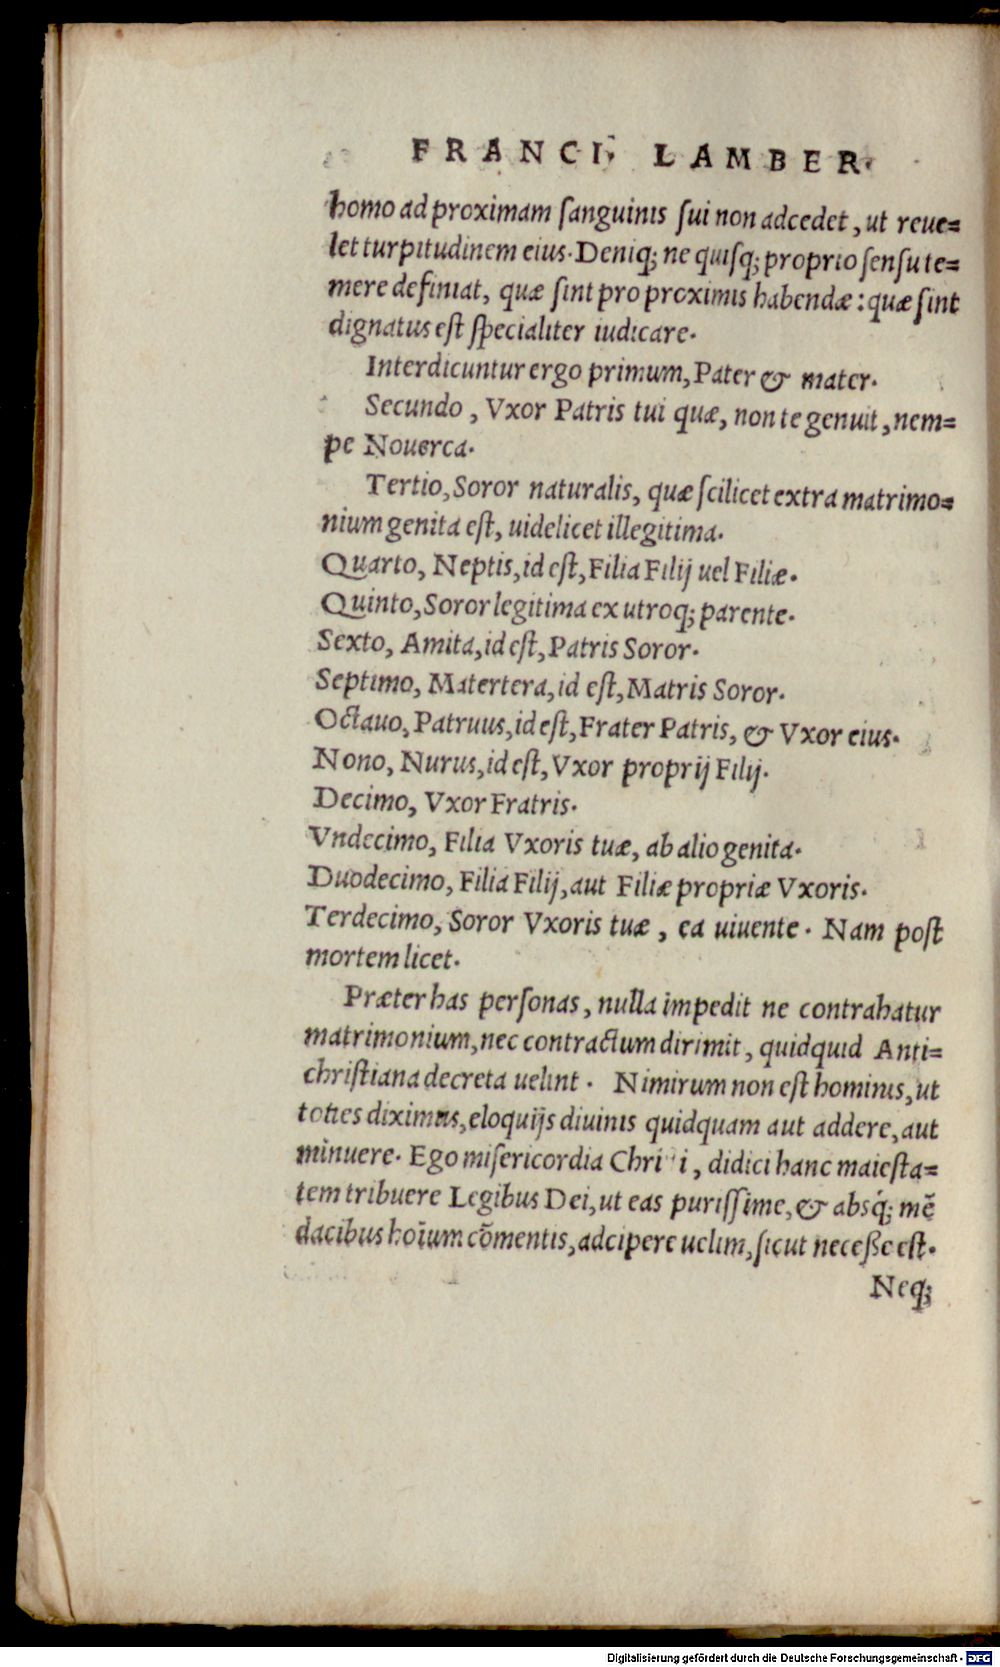 FRANCI, LAMBER.
homo ad proximam ſanguinis ſui non adcedet, ut reue=
let turpitudinem eius. Deniq; ne quiſq; proprio ſenſu te=
mere definiat, quæ ſint pro proximis habendæ: quæ ſint
dignatus eſt ſpecialiter iudicare.
Interdicuntur ergo primum, Pater & mater.
Secundo, Vxor Patris tui quæ, non te genuit, nem=
pe Nouerca.
Tertio, Soror naturalis, quæ ſcilicet extra matrimo=
nium genita eſt, uidelicet illegitima.
Quarto, Neptis, id eſt, Filia Filij uel Filiæ.
Quinto, Soror legitima ex utroq; parente.
Sexto, Amita, id eſt, Patris Soror.
Septimo, Matertera, id eſt, Matris Soror.
Octauo, Patruus, id eſt, Frater Patris, & Vxor eius.
Nono, Nurus, id eſt, Vxor proprij Filij.
Decimo, Vxor Fratris.
Vndecimo, Filia Vxoris tuæ, ab alio genita.
Duodecimo, Filia Filij, aut Filiæ propriæ Vxoris.
Terdecimo, Soror Vxoris tuæ, ea uiuente. Nam poſt
mortem licet.
Præter has perſonas, nulla impedit ne contrahatur
matrimonium, nec contractum dirimit, quidquid Anti=
chriſtiana decreta uelint. Nimirum non eſt hominis, ut
toties diximus, eloquijs diuinis quidquam aut addere, aut
minuere. Ego miſericordia Chri i, didici hanc maieſta=
tem tribuere Legibus Dei, ut eas puriſſime, & absq́; mẽ
dacibus hoĩum cõmentis, adcipere uelim, ſicut neceße eſt.
Neq;
Digitalisierung gefördert durch die Deutsche Forschungsgemeinschaft - DFG